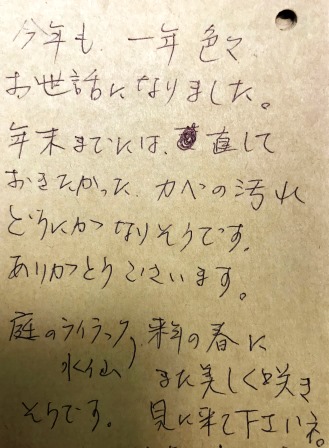 今年も、一年色々
お世話になりました。
年末までには、直して
おきたかった、カベの汚れ
どうにかなりそうです。
ありがとうございます。
庭のライラック、来年の春に
水仙 また美しく咲き
そうです。見に来て下さいネ。